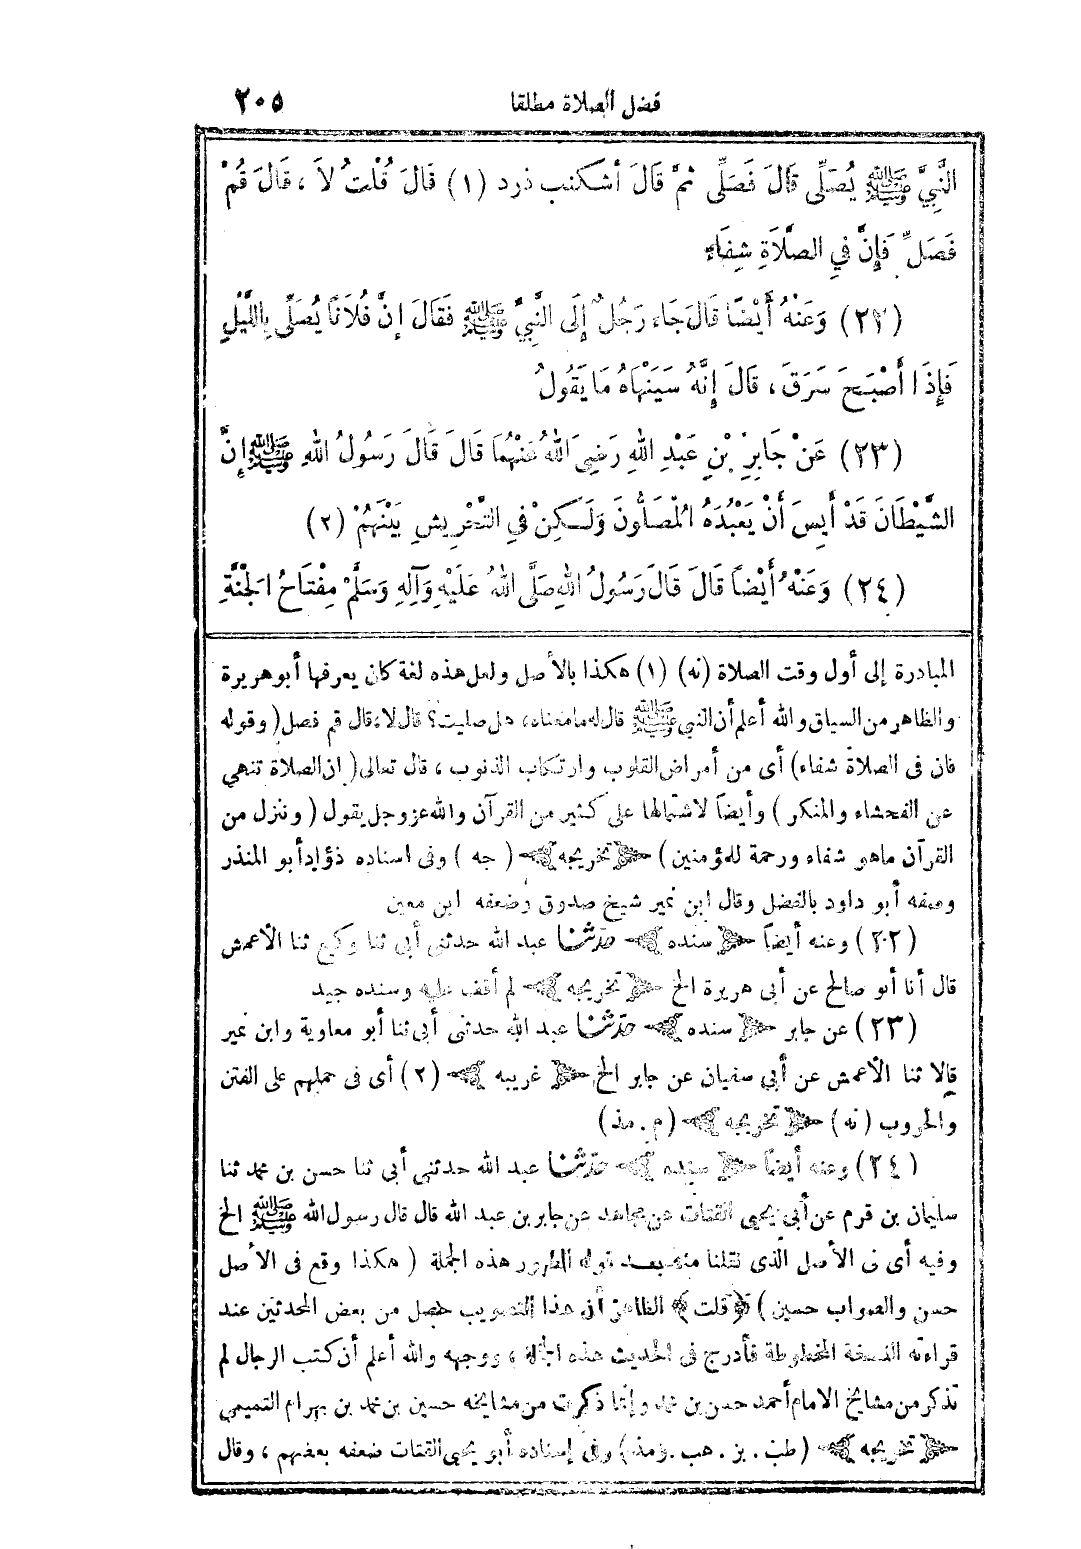 فضل الصلاة مطلقا ٢٠٥
النَّبِيَّ ﷺ يُصَلِّي قَالَ فَصَلَّى ثمَّ قَالَ أشكنب ذرد (١) قَالَ قُلْتُ لاَ ، قَالَ قُمْ
فَصَلِّ فَإِنَّ فِي الصَّلَاةِ شِفَاءً
(٢٢) وَعَنْهُ أَيْضًا قَالَ جَاءَ رَجُلٌ إِلَى النَّبِيِّ ﷺ فَقَالَ إِنَّ فُلَانًا يُصَلِّى بِاللَّيْلِ
فَإِذَا أَصْبَحَ سَرَقَ ، قَالَ إِنَّهُ سَيَنْهَاهُ مَا يَقُولُ
(٢٣) عَنْ جَابِرِ بْنِ عَبْدِ اللهِ رَضِيَ اللهُ عَنْهُمَا قَالَ قَالَ رَسُولُ اللهِ ﷺ إِنَّ
الشَّيْطَانَ قَدْ أَيِسَ أَنْ يَعْبُدَهُ الْمُصَلُّونَ وَلَـكِنْ فِي التَّحْرِيشِ بَيْنَهُمْ (٢)
(٢٤) وَعَنْهُ أَيْضاً قَالَ قَالَ رَسُولُ اللهِ صَلَّى اللهُ عَلَيْهِ وَآلِهِ وَسَلَّمْ مِفْتَاحُ الْجَنَّةِ
المبادرة إلى أول وقت الصلاة (نه) (١) هكذا بالأصل ولعل هذه لغة كان يعرفها أبو هريرة
والظاهر من السياق والله أعلم أن النبي ﷺ قال له ما معناه، هل صليت؟ قال لا، قال قم فصل (وقوله
فان فى الصلاة شفاء) أى من أمراض القلوب وارتكاب الذنوب ، قال تعالى (ان الصلاة تنهي
عن الفحشاء والمنكر) وأيضاً لاشتمالها على كثير من القرآن والله عز وجل يقول (وننزل من
القرآن ماهو شفاء ورحمة للمؤمنين) ﴿تخريجه﴾ (جه) وفى اسناده ذؤاد أبو المنذر
وصفه أبو داود بالفضل وقال ابن نمير شيخ صدوق وضعفه ابن معين
(٢٠٢) وعنه أيضاً ﴿سنده﴾ حدّثنا عبد الله حدثنى أبى ثنا وكيع ثنا الأعمش
قال أنا أبو صالح عن أبى هريرة الخ ﴿تخريجه﴾ لم أقف عليه وسنده جيد
(٢٣) عن جابر ﴿سنده﴾ حدّثنا عبد الله حدثنى أبى ثنا أبو معاوية وابن نمير
قالا ثنا الأعمش عن أبي سفيان عن جابر الخ ﴿غريبه﴾ (٢) أى فى حملهم على الفتن
والحروب (نه) ﴿تخريجه﴾ (م . مذ)
(٢٤) وعنه أيضاً ﴿سنده﴾ حدّثنا عبد الله حدثنى أبي ثنا حسن بن محمد ثنا
سليمان بن قرم عن أبي يحيى القتات عن مجاهد عن جابر بن عبد الله قال قال رسول الله ﷺ الخ
وفيه أى فى الأصل الذى نقلنا منه بعد قوله الطهور هذه الجملة (هكذا وقع فى الأصل
حسن والصواب حسين) ﴿قلت﴾ الظاهر أن هذا التصويب حصل من بعض المحدثين عند
قراءته النسخة المخطوطة فأدرج فى الحديث هذه الجملة ، ووجهه والله أعلم أن كتب الرجال لم
تذكر من مشايخ الامام أحمد حسن بن محمد وإنما ذكرت من مشايخه حسين بن محمد بن بهرام التميمي
﴿تخريجه﴾ (طب . بز . هب . مذ) وفى إسناده أبو يحيى القتات ضعفه بعضهم ، وقال